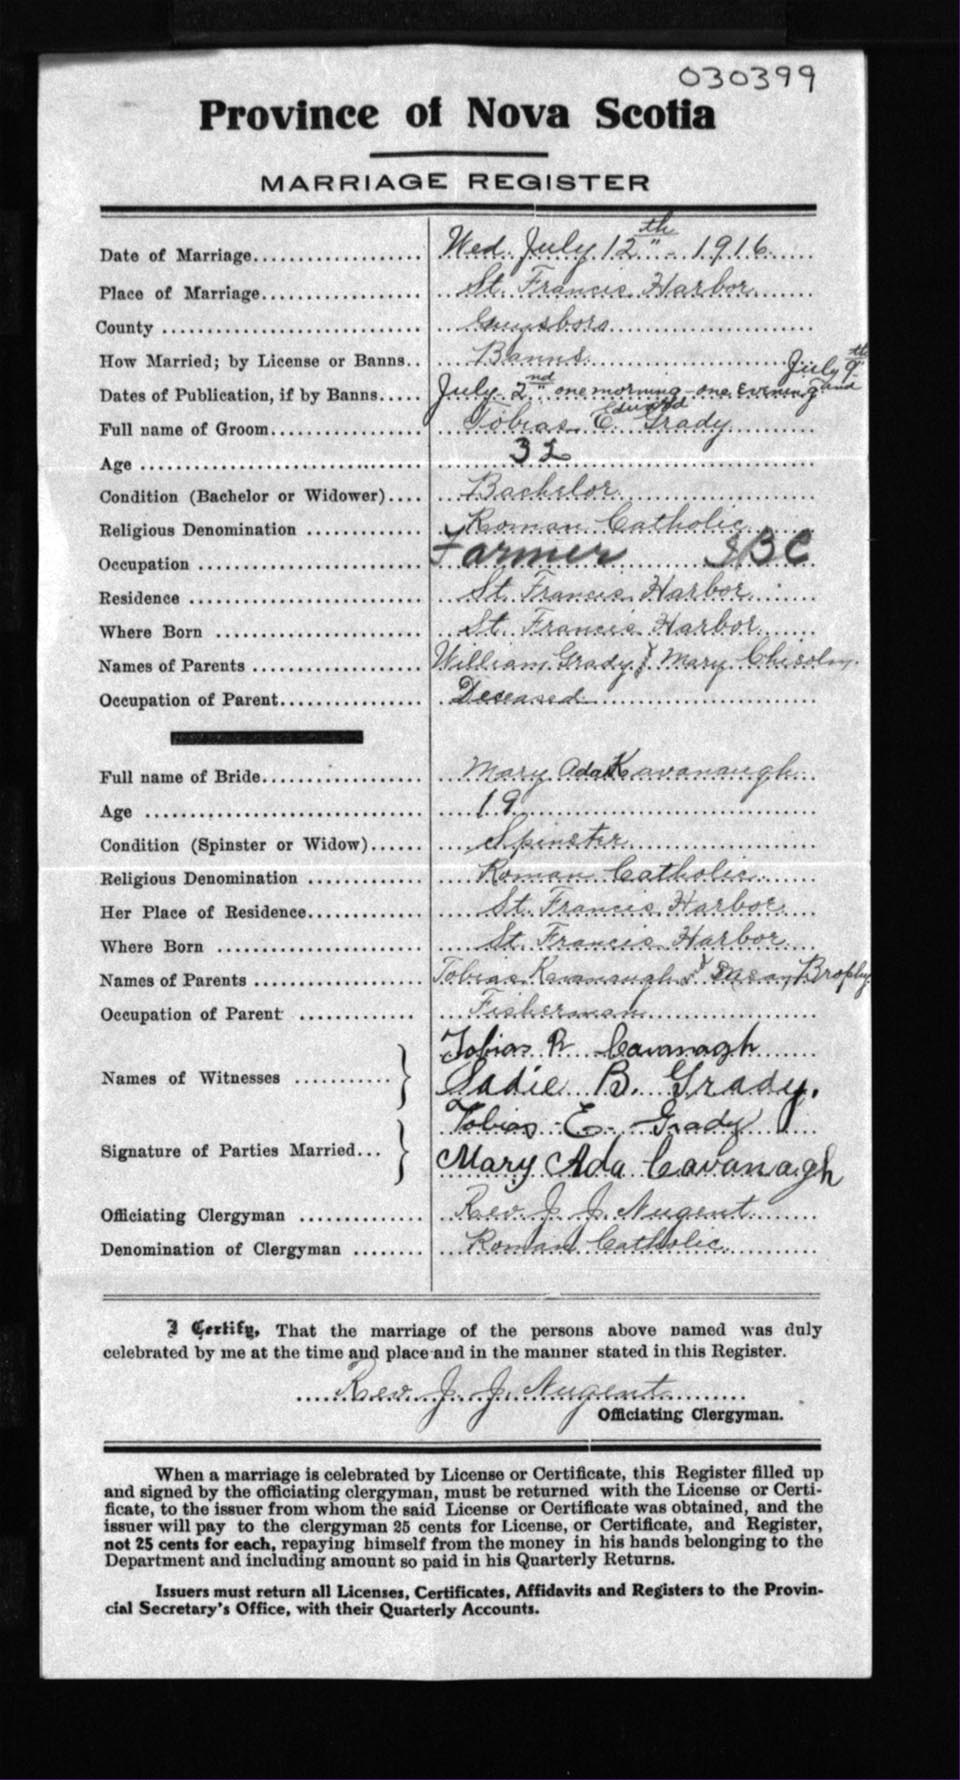 030399
Province of Nova Scotia
MARRIAGE REGISTER
Date of Marriage.................... Wed. July 12th - 1916
Place of Marriage................... St. Francis Harbor
County ............................. Guysboro
How Married; by License or Banns.. Banns.
Dates of Publication, if by Banns..... July 2nd one morning - one evening and July 9th
Full name of Groom.................. Tobias E. Edward Grady
Age ................................ 32
Condition (Bachelor or Widower).... Bachelor
Religious Denomination ............. Roman Catholic
Occupation ......................... Farmer BC
Residence .......................... St. Francis Harbor
Where Born ......................... St. Francis Harbor
Names of Parents ................... William Grady & Mary Chisolm
Occupation of Parent................ Deceased
Full name of Bride.................. Mary Ada Kavanaugh
Age ................................ 19
Condition (Spinster or Widow)...... Spinster
Religious Denomination ............. Roman Catholic
Her Place of Residence.............. St. Francis Harbor
Where Born ......................... St. Francis Harbor
Names of Parents ................... Tobias Kavanaugh & Brophy
Occupation of Parent ............. Fisherman
Tobias R Cavanagh
Names of Witnesses ........... } Sadie B. Grady.
Tobias E. Grady
Signature of Parties Married... } Mary Ada Cavanagh
Officiating Clergyman .............. Rev. J. J. Nugent
Denomination of Clergyman ........ Roman Catholic
I Certify, That the marriage of the persons above named was duly
celebrated by me at the time and place and in the manner stated in this Register.
Rev. J. J. Nugent
Officiating Clergyman.
When a marriage is celebrated by License or Certificate, this Register filled up
and signed by the officiating clergyman, must be returned with the License or Certi-
ficate, to the issuer from whom the said License or Certificate was obtained, and the
issuer will pay to the clergyman 25 cents for License, or Certificate, and Register,
not 25 cents for each, repaying himself from the money in his hands belonging to the
Department and including amount so paid in his Quarterly Returns.
Issuers must return all Licenses, Certificates, Affidavits and Registers to the Provin-
cial Secretary's Office, with their Quarterly Accounts.